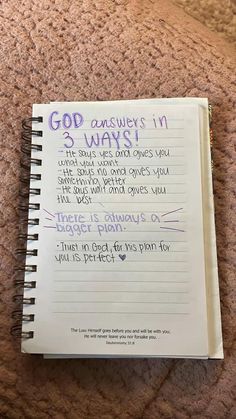 GOD answers in
3 WAYS!
- He says yes and gives you
what you want
- He says no and gives you
something better
- He says wait and gives you
the best
There is always a
bigger plan.
• Trust in God, for his plan for
you is perfect ♥
The LORD Himself goes before you and will be with you;
He will never leave you nor forsake you.
Deuteronomy 31:8